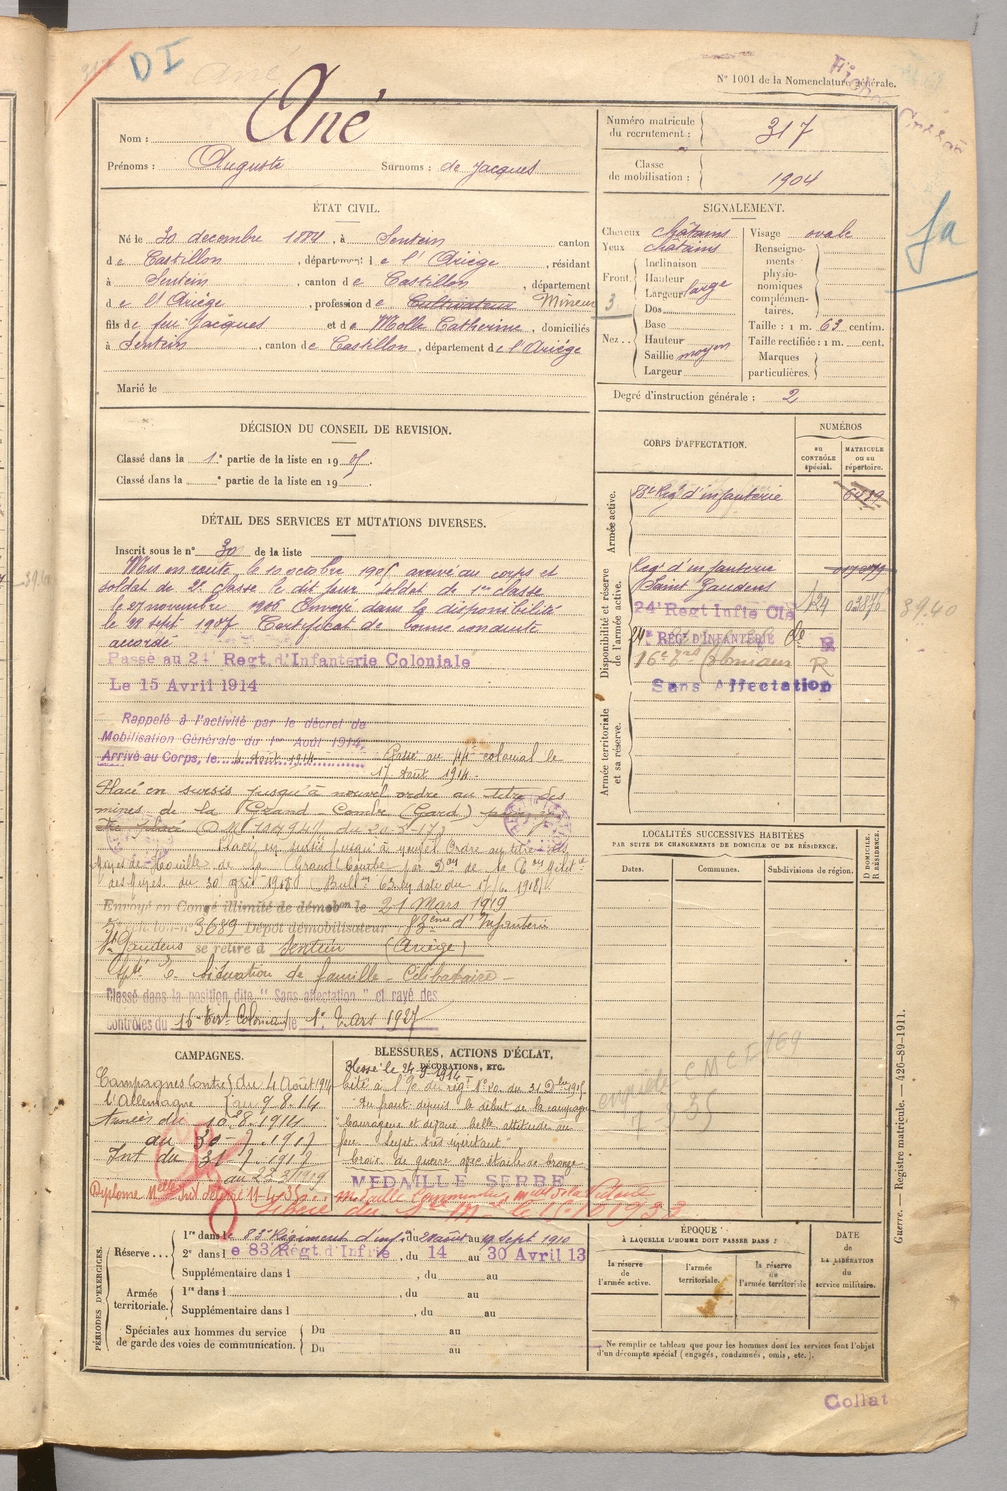 DI
N° 1001 de la Nomenclature générale.
Nom : Ané
Prénoms : Auguste Surnoms : de Jacques
Numéro matricule du recrutement : 317
Classe de mobilisation : 1904
ÉTAT CIVIL.
Né le 30 decembre 1884, à Sentein canton
de Castillon, département de l'Ariège, résidant
à Sentein, canton de Castillon, département
de l'Ariège, profession de Cultivateur Mineur
fils de feu Jacques et de Molle Catherine, domiciliés
à Sentein, canton de Castillon, département de l'Ariège
Marié le
SIGNALEMENT.
Cheveux châtains
Yeux châtains
Front Inclinaison
Hauteur
Largeur large
Nez Dos
Base
Hauteur
Saillie moyen
Largeur
Visage ovale
Renseignements physionomiques complémentaires.
Taille : 1 m. 63 centim.
Taille rectifiée : 1 m. cent.
Marques particulières.
3
Degré d'instruction générale : 2
DÉCISION DU CONSEIL DE REVISION.
Classé dans la 1e partie de la liste en 1905.
Classé dans la e partie de la liste en 19 .
DÉTAIL DES SERVICES ET MUTATIONS DIVERSES.
Inscrit sous le n° 30 de la liste
Mis en route le 10 octobre 1905 arrivé au corps et
soldat de 2e classe le dit jour soldat de 1re classe
le 27 novembre 1906 Envoyé dans la disponibilité
le 28 sept 1907 Certificat de bonne conduite
accordé
Passé au 24e Regt. d'Infanterie Coloniale
Le 15 Avril 1914
Rappelé à l'activité par le décret de
Mobilisation Générale du 1er Août 1914,
Arrivé au Corps, le 4 Août 1914 Passé au 44e colonial le
17 Août 1914.
Placé en sursis jusqu'à nouvel ordre au titre des
mines de la Grand Combe (Gard)
Placé en sursis jusqu'à nouvel ordre au titre des
Mines de Houille de la Grand Combe
Envoyé en Congé illimité de démobon le 21 Mars 1919
3689 Dépôt démobilisateur 83ème d'Infanterie
St Gaudens se retire à Sentein (Ariège)
Situation de famille - Célibataire -
Classé dans la position dite "Sans affectation" et rayé des
contrôles du 16e Terl Colonial le 1er Mars 1927
CORPS D'AFFECTATION.
NUMÉROS
au CONTRÔLE spécial.
MATRICULE ou au répertoire.
Armée active.
Regt d'infanterie
Disponibilité et réserve de l'armée active.
Regt d'infanterie
Saint Gaudens
24e Regt Infie Cle 124 03876
RÉGt D'INFANTERIE
R
Sans Affectation
Armée territoriale et sa réserve.
8940
LOCALITÉS SUCCESSIVES HABITÉES
PAR SUITE DE CHANGEMENTS DE DOMICILE OU DE RÉSIDENCE.
Dates.
Communes.
Subdivisions de région.
D DOMICILE.
R RÉSIDENCE.
CAMPAGNES.
Campagnes contre du 4 Août 1914
l'Allemagne au 9.8.14
Armées du 10.8.1914
au 30-7.1917
Int du 31.7.1917
BLESSURES, ACTIONS D'ÉCLAT, DÉCORATIONS, ETC.
Blessé le 24-9-1914
"Au front depuis le début de la campagne
Courageux et dévoué belle attitude au
feu. Sujet très méritant"
Croix de guerre avec étoile de bronze
MEDAILLE SERBE
PÉRIODES D'EXERCICES.
Réserve...
1re dans le 83e Régiment d'inf. du au Sept 1910
2e dans le 83 Régt d'Infrie, du 14 au 30 Avril 13
Supplémentaire dans l , du au
Armée territoriale.
1re dans l , du au
Supplémentaire dans l , du au
Spéciales aux hommes du service de garde des voies de communication.
Du au
Du au
ÉPOQUE
À LAQUELLE L'HOMME DOIT PASSER DANS :
la réserve de l'armée active.
l'armée territoriale.
la réserve de l'armée territoriale
DATE de LA LIBÉRATION du service militaire.
Ne remplir ce tableau que pour les hommes dont les services font l'objet d'un décompte spécial (engagés, condamnés, omis, etc.).
Guerre. — Registre matricule. — 426-89-1911.
Collat